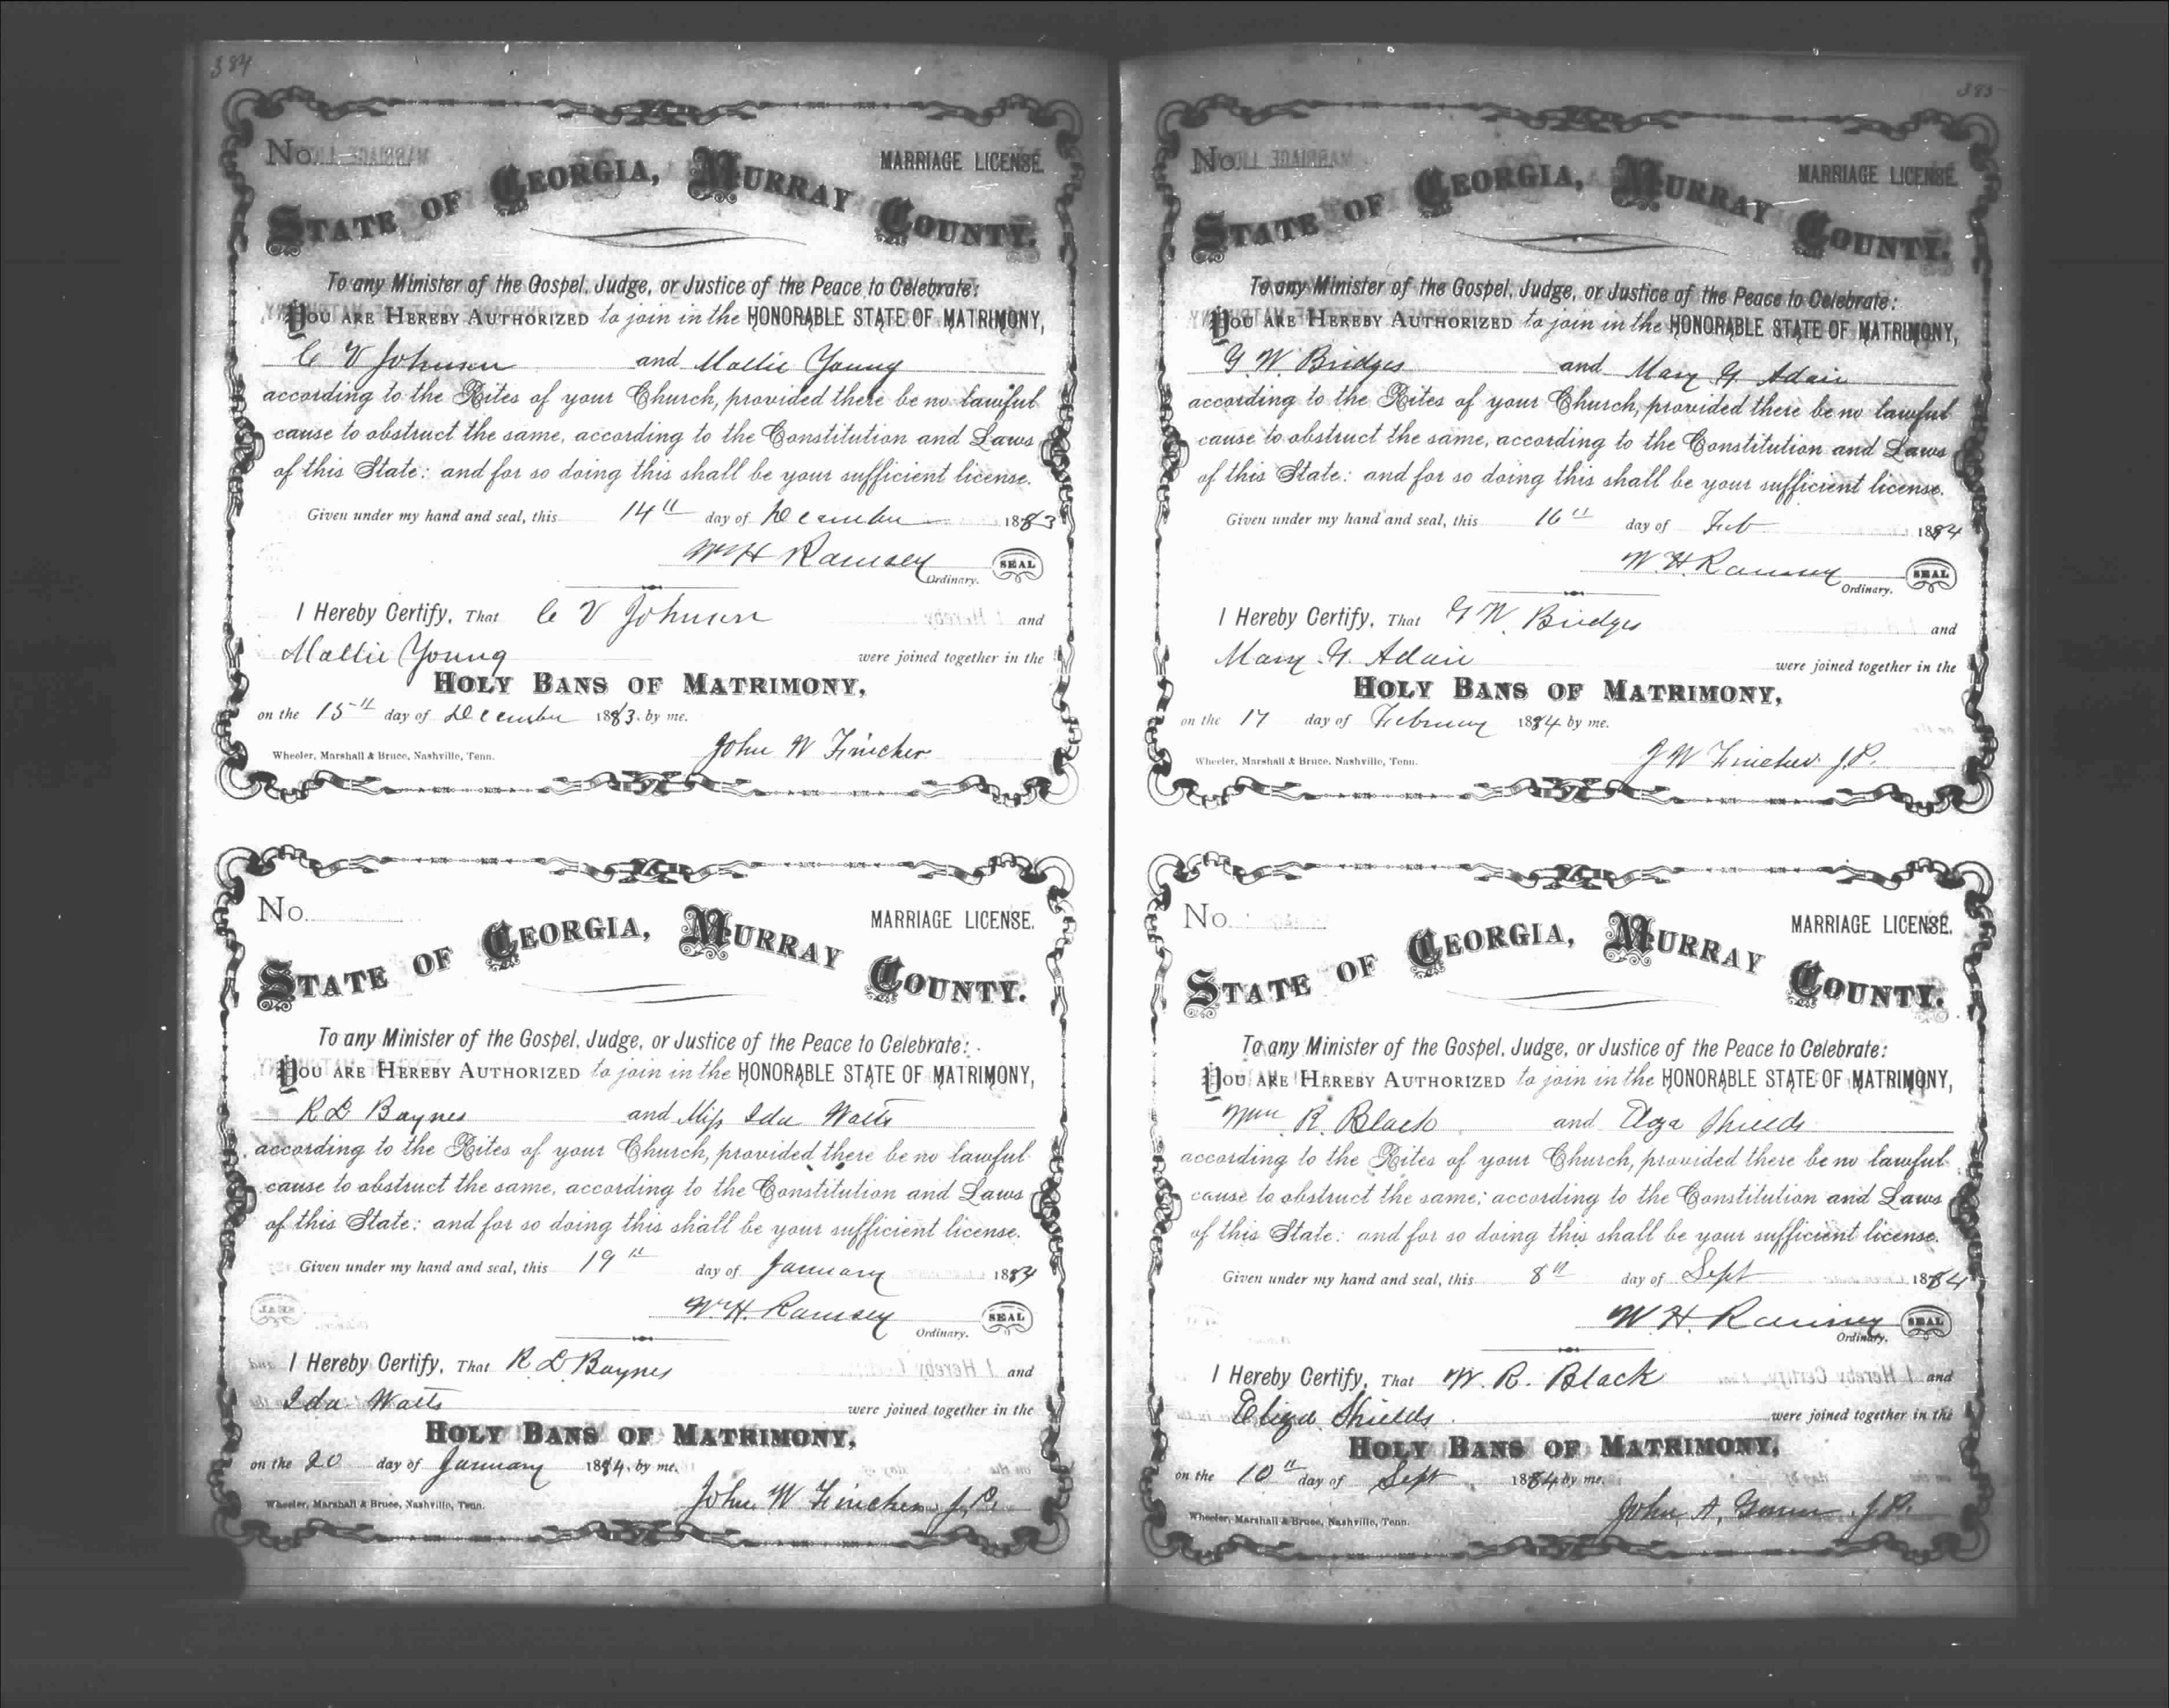 384
No.
MARRIAGE LICENSE.
STATE OF GEORGIA, MURRAY COUNTY.
To any Minister of the Gospel, Judge, or Justice of the Peace to Celebrate:
YOU ARE HEREBY AUTHORIZED to join in the HONORABLE STATE OF MATRIMONY,
C V Johnson and Mollie Young
according to the Rites of your Church, provided there be no lawful
cause to obstruct the same, according to the Constitution and Laws
of this State: and for so doing this shall be your sufficient license.
Given under my hand and seal, this 14th day of December 1883
W H Ramsey SEAL
Ordinary.
I Hereby Certify, That C V Johnson and
Mollie Young were joined together in the
HOLY BANS OF MATRIMONY,
on the 15th day of December 1883. by me.
John W Fincher
Wheeler, Marshall & Bruce, Nashville, Tenn.
No.
MARRIAGE LICENSE.
STATE OF GEORGIA, MURRAY COUNTY.
To any Minister of the Gospel, Judge, or Justice of the Peace to Celebrate:
YOU ARE HEREBY AUTHORIZED to join in the HONORABLE STATE OF MATRIMONY,
R L Baynes and Miss Ida Watts
according to the Rites of your Church, provided there be no lawful
cause to obstruct the same, according to the Constitution and Laws
of this State: and for so doing this shall be your sufficient license.
Given under my hand and seal, this 19th day of January 1884
W. H. Ramsey SEAL
Ordinary.
I Hereby Certify, That R. L. Baynes and
Ida Watts were joined together in the
HOLY BANS OF MATRIMONY,
on the 20 day of January 1884. by me.
John W. Fincher J.P.
Wheeler, Marshall & Bruce, Nashville, Tenn.
385
No.
MARRIAGE LICENSE.
STATE OF GEORGIA, MURRAY COUNTY.
To any Minister of the Gospel, Judge, or Justice of the Peace to Celebrate:
YOU ARE HEREBY AUTHORIZED to join in the HONORABLE STATE OF MATRIMONY,
G W Bridges and Mary G. Adair
according to the Rites of your Church, provided there be no lawful
cause to obstruct the same, according to the Constitution and Laws
of this State: and for so doing this shall be your sufficient license.
Given under my hand and seal, this 16th day of Feb 1884
W. H. Ramsey SEAL
Ordinary.
I Hereby Certify, That G W. Bridges and
Mary G. Adair were joined together in the
HOLY BANS OF MATRIMONY,
on the 17 day of February 1884 by me.
J W Fincher J.P.
Wheeler, Marshall & Bruce, Nashville, Tenn.
No.
MARRIAGE LICENSE.
STATE OF GEORGIA, MURRAY COUNTY.
To any Minister of the Gospel, Judge, or Justice of the Peace to Celebrate:
YOU ARE HEREBY AUTHORIZED to join in the HONORABLE STATE OF MATRIMONY,
Wm R. Black and Shields
according to the Rites of your Church, provided there be no lawful
cause to obstruct the same, according to the Constitution and Laws
of this State: and for so doing this shall be your sufficient license.
Given under my hand and seal, this 8th day of Sept 1884
W. H. Ramsey SEAL
Ordinary.
I Hereby Certify, That W. R. Black and
Eliza Shields were joined together in the
HOLY BANS OF MATRIMONY,
on the 10th day of Sept 1884 by me.
John A. J.P.
Wheeler, Marshall & Bruce, Nashville, Tenn.